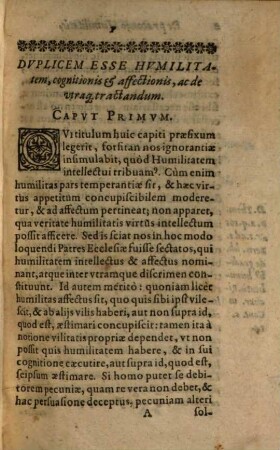 DVPLICEM ESSE HVMILITA-
tem, cognitionis & affectionis, ac de
vtraq; tractandum.
CAPVT PRIMVM.
QVi titulum huic capiti præfixum
legerit, forsitan nos ignorantiæ
insimulabit, quòd Humilitatem
intellectui tribuam⁹. Cùm enim
humilitas pars temperantiæ sit, & hæc vir-
tus appetitum concupiscibilem modere-
tur, & ad affectum pertineat; non apparet,
qua veritate humilitatis virtꝰ intellectum
possit afficere. Sed is sciat nos in hoc modo
loquendi Patres Ecclesiæ fuisse sectatos, qui
humilitatem intellectus & affectus nomi-
nant, atque inter vtramque discrimen con-
stituunt. Id autem meritò: quoniam licèt
humilitas affectus sit, quo quis sibi ipsi vile-
scit, & ab alijs vilis haberi, aut non supra id,
quod est, æstimari concupiscit: tamen ita à
notione vilitatis propriæ dependet, vt non
possit quis humilitatem habere, & in sui
cognitione cæcutire, aut supra id, quod est,
seipsum æstimare. Si homo putet se debi-
torem pecuniæ, quam re vera non debet, &
hac persuasione deceptus, pecuniam alteri
A sol-